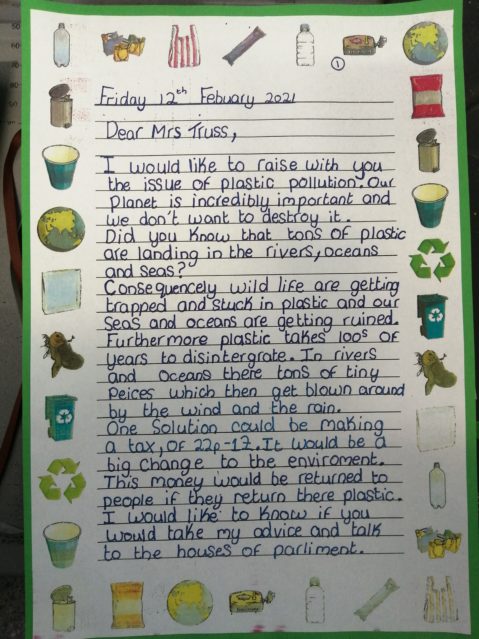 1
Friday 12th Febuary 2021
Dear Mrs Truss,
I would like to raise with you
the issue of plastic pollution. Our
Planet is incredibly important and
we don't want to destroy it.
Did you know that tons of plastic
are landing in the rivers, oceans
and seas?
Consequencely wild life are getting
trapped and stuck in plastic and our
Seas and oceans are getting ruined.
Furthermore plastic takes 100s of
years to disintergrate. In rivers
and Oceans there tons of tiny
Peices which then get blown around
by the wind and the rain.
One Solution could be making
a tax, of 22p-1Z. It would be a
big change to the enviroment.
This money would be returned to
people if they return there plastic.
I would like to know if you
would take my advice and talk
to the houses of parliment.